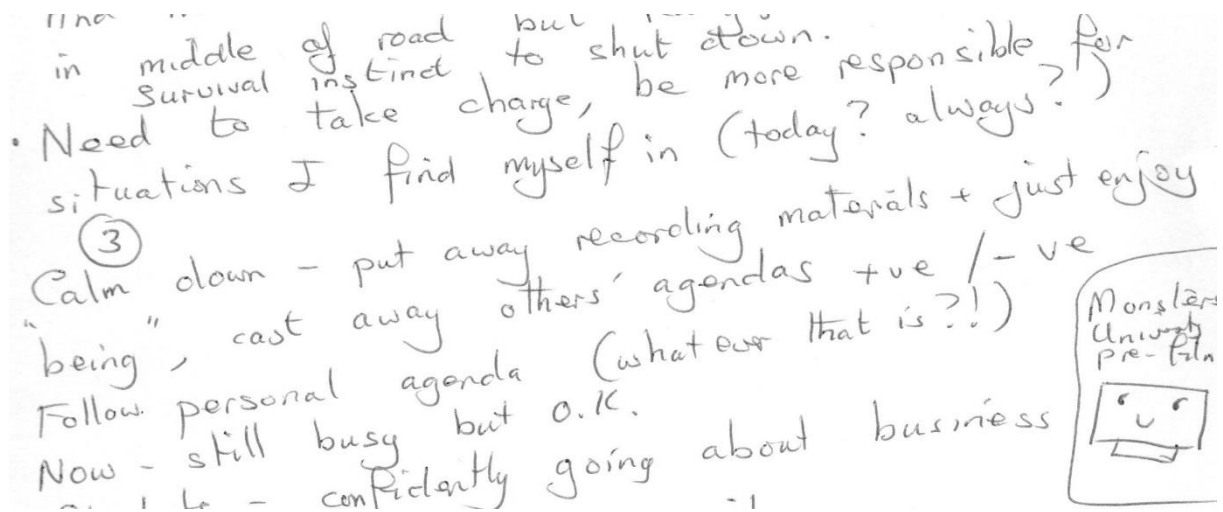 in middle of road but
survival instinct to shut down.
• Need to take charge, be more responsible for
situations I find myself in (today? always?)
③
Calm down - put away recording materials + just enjoy
"being", cast away others' agendas +ve /-ve
Follow personal agenda (what ever that is?!)
Now - still busy but O.K.
- confidently going about business
Monsters
University
pre-film